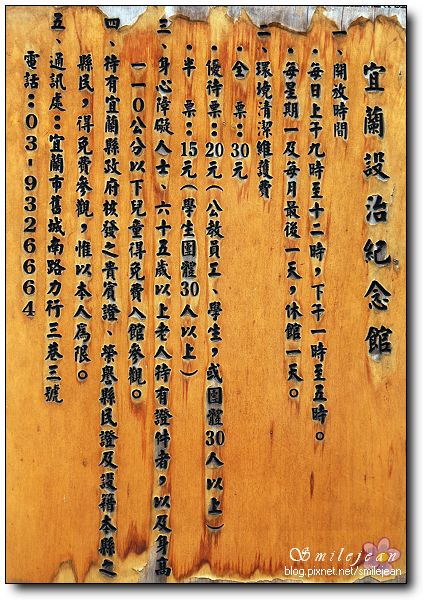 宜蘭設治紀念館
一、開放時間
・每日上午九時至十二時，下午一時至五時。
・每星期一及每月最後一天，休館一天。
二、環境清潔維護費
・全　票：30元
・優待票：20元（公教員工、學生，或團體30人以上）
・半　票：15元（學生團體30人以上）
三、身心障礙人士、六十五歲以上老人持有證件者，以及身高
一一０公分以下兒童得免費入館參觀。
四、持有宜蘭縣政府核發之貴賓證、榮譽縣民證及設籍本縣之
縣民，得免費參觀，惟以本人為限。
五、通訊處：宜蘭市舊城南路力行三巷三號
電話：03-9326664
Smilejean
blog.pixnet.net/smilejean